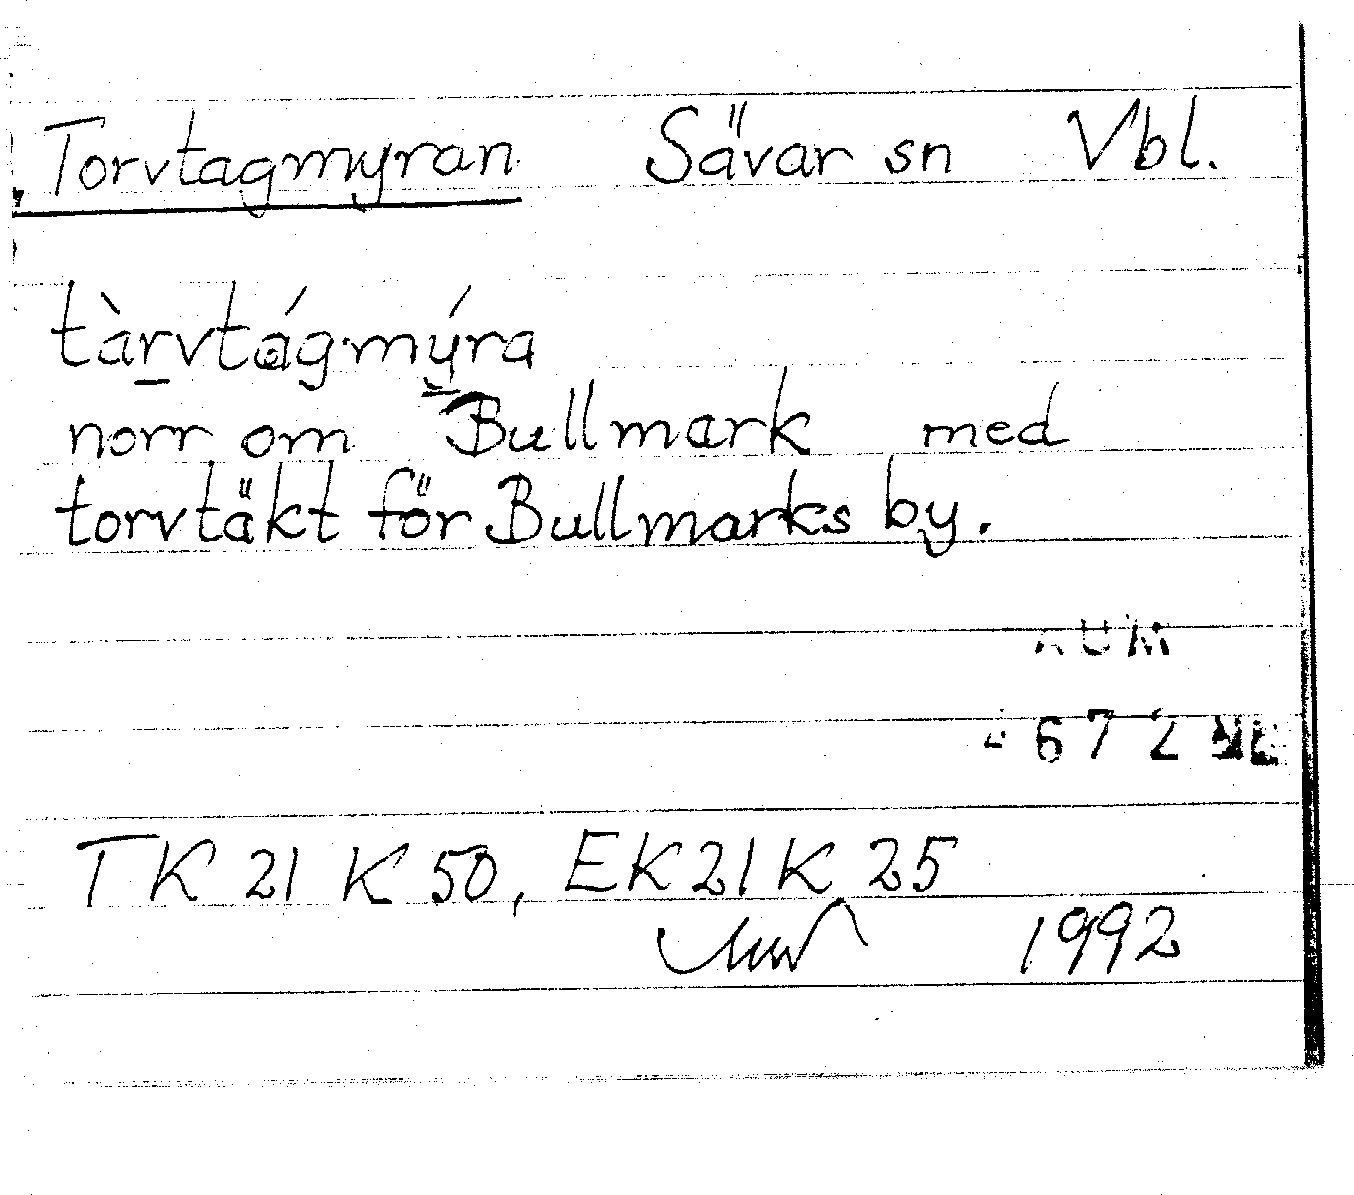 Torvtagmyran Sävar sn Vbl.
tàrvtágmýra
norr om Bullmark med
torvtäkt för Bullmarks by.
672
TK 21 K 50, EK 21 K 25
1992